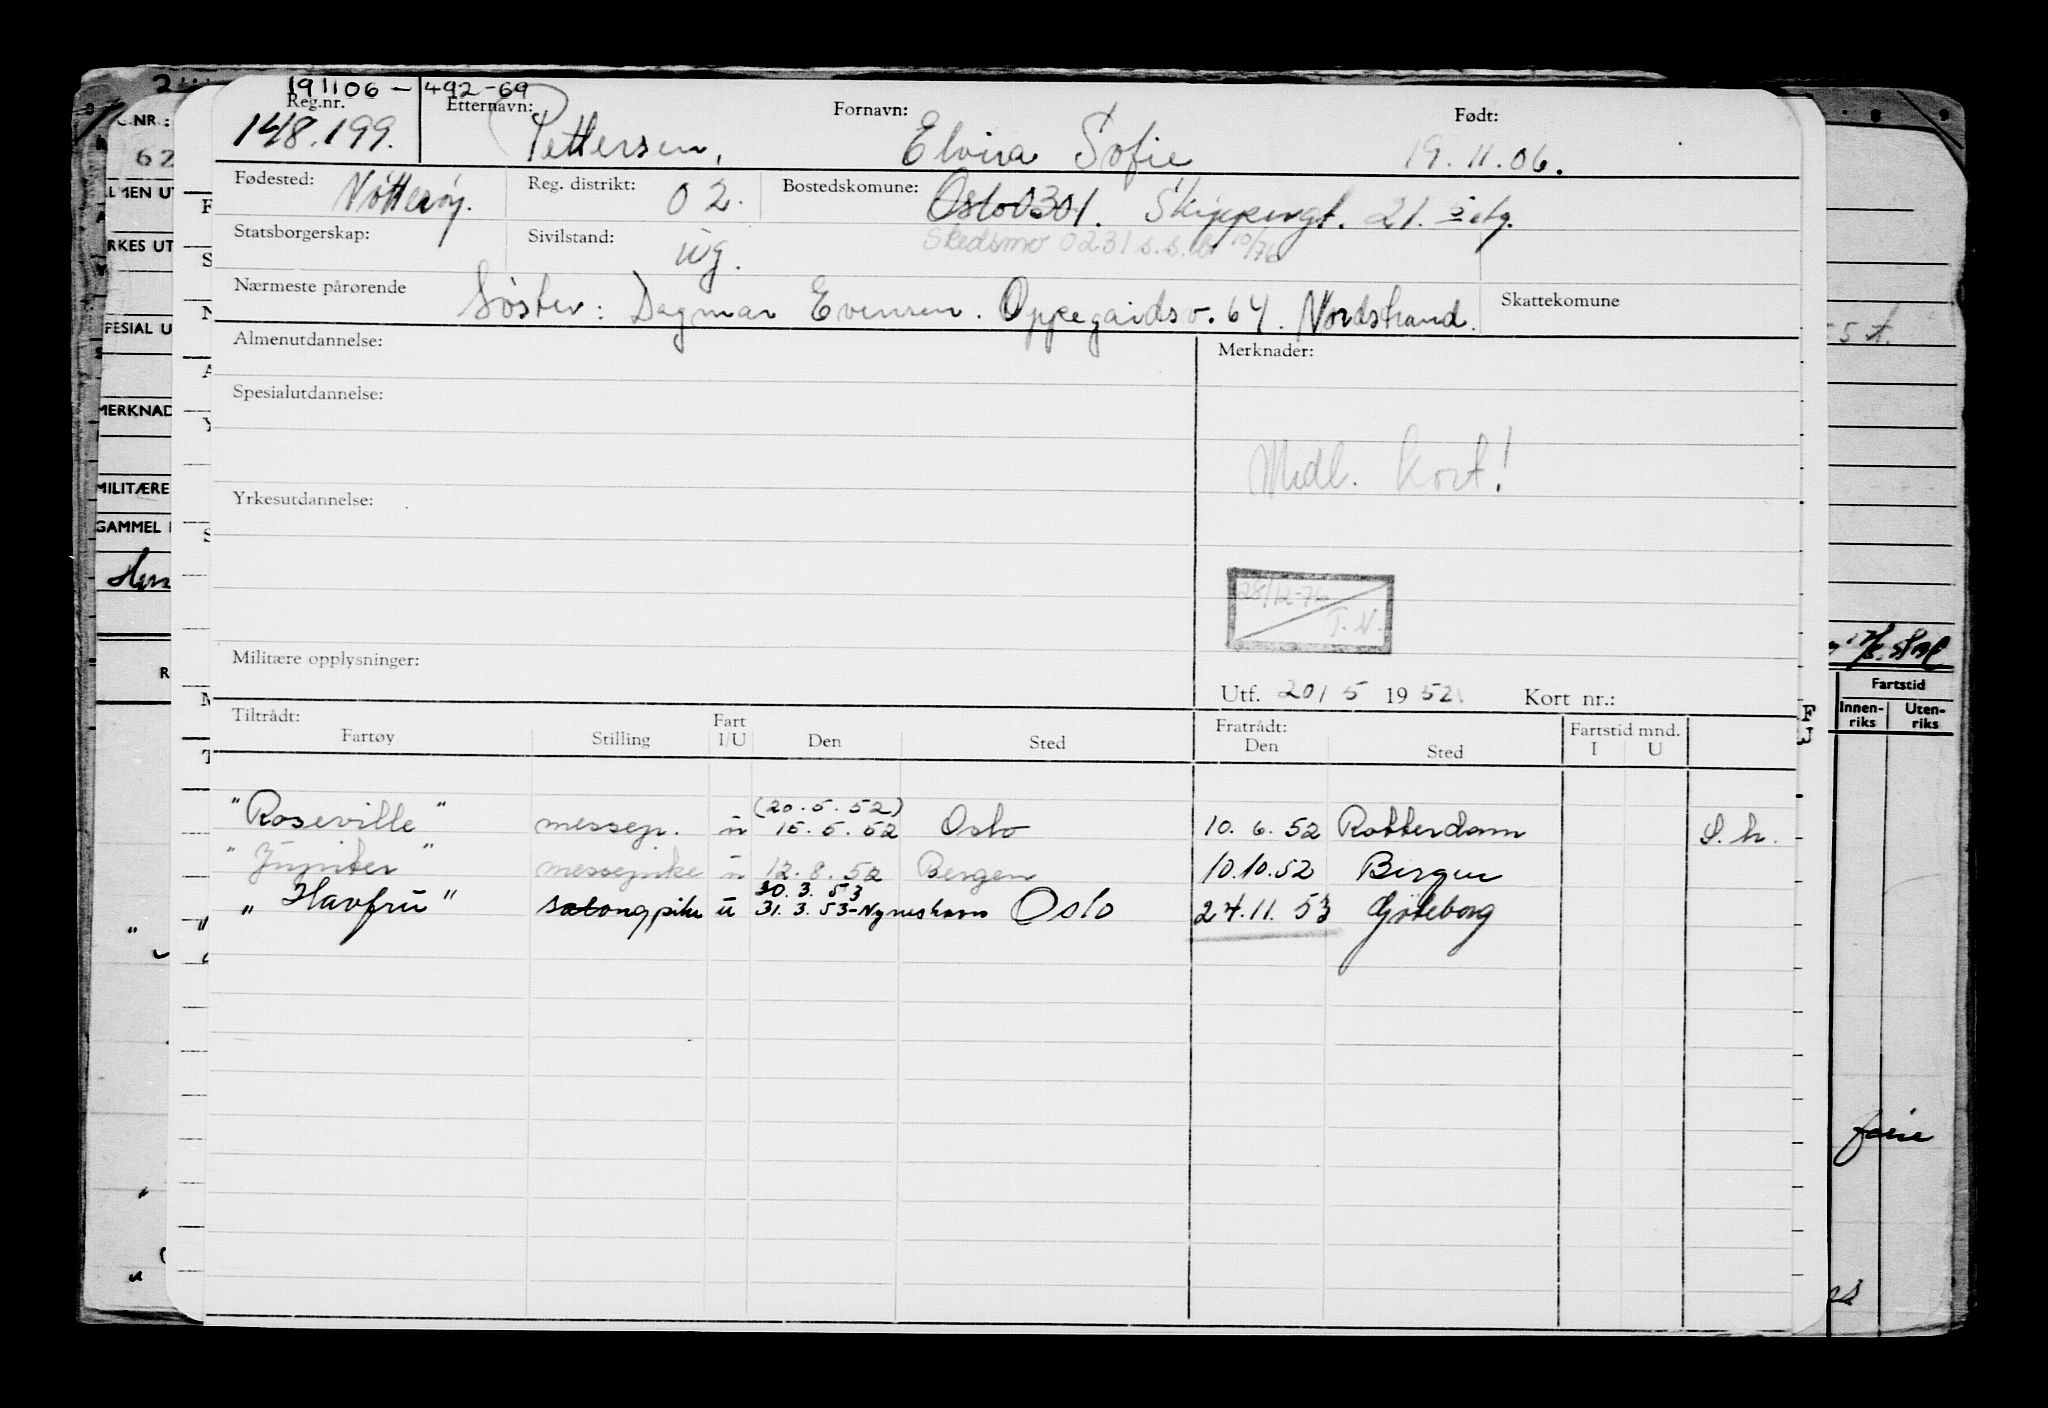 191106 - 492-69
Reg.nr. Etternavn: Fornavn: Født:
148.199. Pettersen, Elvira Sofie 19.11.06.
Fødested: Nøtterøy. Reg. distrikt: 02. Bostedskomune: Oslo 0301. Skippergt. 21.
Statsborgerskap: Sivilstand: ug. Skedsmo 0231 10/76
Nærmeste pårørende Søster: Dagmar Evensen. Oppegaardsv. 64. Nordstrand. Skattekomune
Almenutdannelse: Merknader:
Spesialutdannelse:
Midl. kort!
Yrkesutdannelse:
28/12-76
T.N.
Militære opplysninger:
Utf. 20/5 1952 Kort nr.:
Tiltrådt: Fart Fratrådt: Fartstid mnd.
Fartøy Stilling I/U Den Sted Den Sted I U
(20.5.52)
"Roseville" messep. u 15.5.52 Oslo 10.6.52 Rotterdam S.h.
"Jupiter" messepike u 12.8.52 Bergen 10.10.52 Bergen
30.3.53
"Havfru" salongpike u 31.3.53-Nyneshavn Oslo 24.11.53 Gøteborg
C.NR.:
62
MERKNAD
MILITÆRE
GAMMEL
Fartstid
Innen-riks Uten-riks